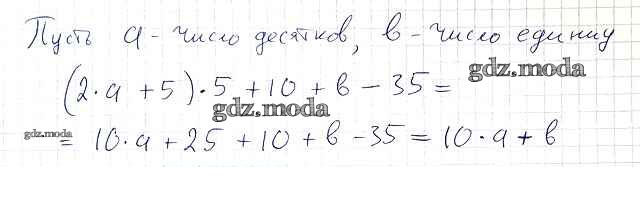 Пусть а - число десятков, в - число единиц
(2·а + 5)·5 + 10 + в - 35 =
gdz.moda
gdz.moda
gdz.moda
= 10·а + 25 + 10 + в - 35 = 10·а + в